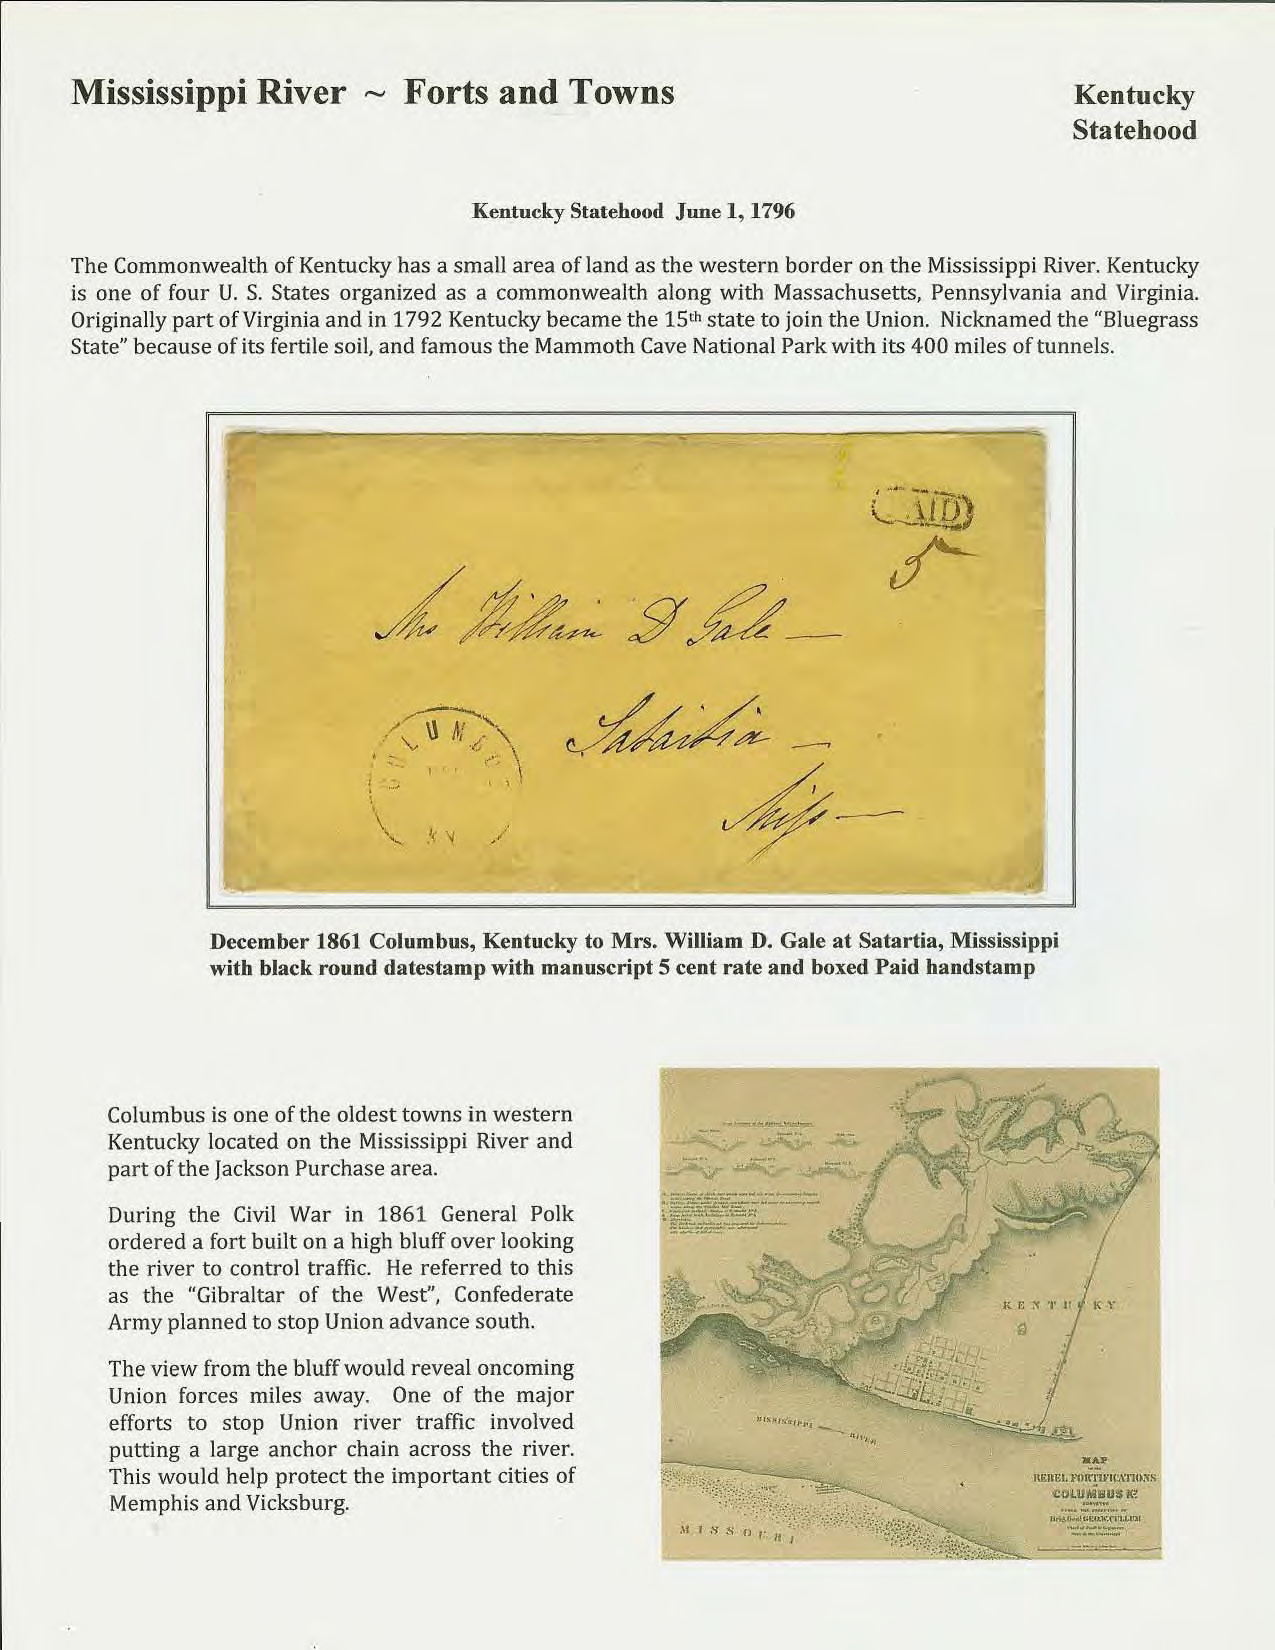 Mississippi River ~ Forts and Towns
Kentucky
Statehood
Kentucky Statehood June 1, 1796
The Commonwealth of Kentucky has a small area of land as the western border on the Mississippi River. Kentucky
is one of four U. S. States organized as a commonwealth along with Massachusetts, Pennsylvania and Virginia.
Originally part of Virginia and in 1792 Kentucky became the 15th state to join the Union. Nicknamed the "Bluegrass
State" because of its fertile soil, and famous the Mammoth Cave National Park with its 400 miles of tunnels.
PAID
5
Mrs William D Gale —
Satartia —
Miss —
COLUMBUS
KY
December 1861 Columbus, Kentucky to Mrs. William D. Gale at Satartia, Mississippi
with black round datestamp with manuscript 5 cent rate and boxed Paid handstamp
Columbus is one of the oldest towns in western
Kentucky located on the Mississippi River and
part of the Jackson Purchase area.
During the Civil War in 1861 General Polk
ordered a fort built on a high bluff over looking
the river to control traffic. He referred to this
as the "Gibraltar of the West", Confederate
Army planned to stop Union advance south.
The view from the bluff would reveal oncoming
Union forces miles away. One of the major
efforts to stop Union river traffic involved
putting a large anchor chain across the river.
This would help protect the important cities of
Memphis and Vicksburg.
KENTUCKY
MISSISSIPPI RIVER
MISSOURI
MAP
REBEL FORTIFICATIONS
COLUMBUS KY
Brig. Genl. GEO. W. CULLUM